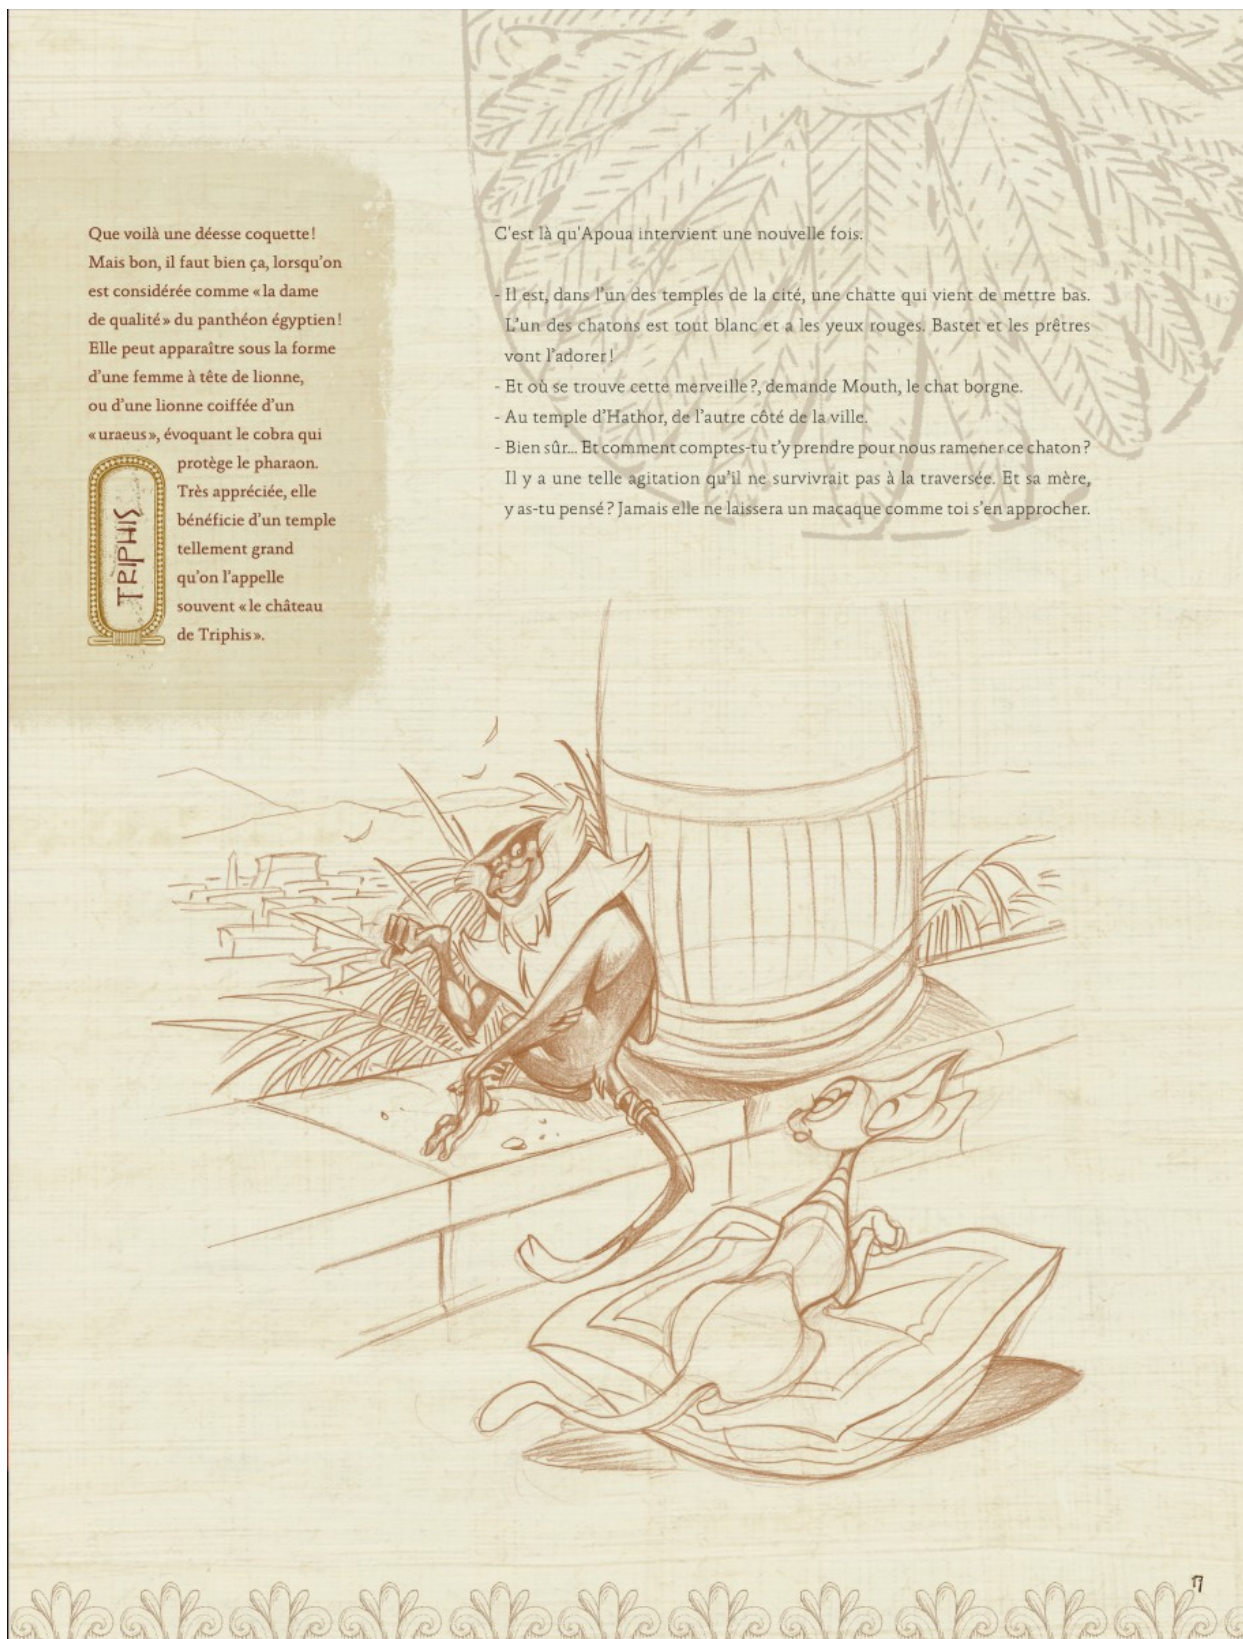 Que voilà une déesse coquette!
Mais bon, il faut bien ça, lorsqu'on
est considérée comme «la dame
de qualité» du panthéon égyptien!
Elle peut apparaître sous la forme
d'une femme à tête de lionne,
ou d'une lionne coiffée d'un
«uraeus», évoquant le cobra qui
protège le pharaon.
Très appréciée, elle
bénéficie d'un temple
tellement grand
qu'on l'appelle
souvent «le château
de Triphis».
TRIPHIS
C'est là qu'Apoua intervient une nouvelle fois.
- Il est, dans l'un des temples de la cité, une chatte qui vient de mettre bas.
L'un des chatons est tout blanc et a les yeux rouges. Bastet et les prêtres
vont l'adorer!
- Et où se trouve cette merveille?, demande Mouth, le chat borgne.
- Au temple d'Hathor, de l'autre côté de la ville.
- Bien sûr... Et comment comptes-tu t'y prendre pour nous ramener ce chaton?
Il y a une telle agitation qu'il ne survivrait pas à la traversée. Et sa mère,
y as-tu pensé? Jamais elle ne laissera un macaque comme toi s'en approcher.
17